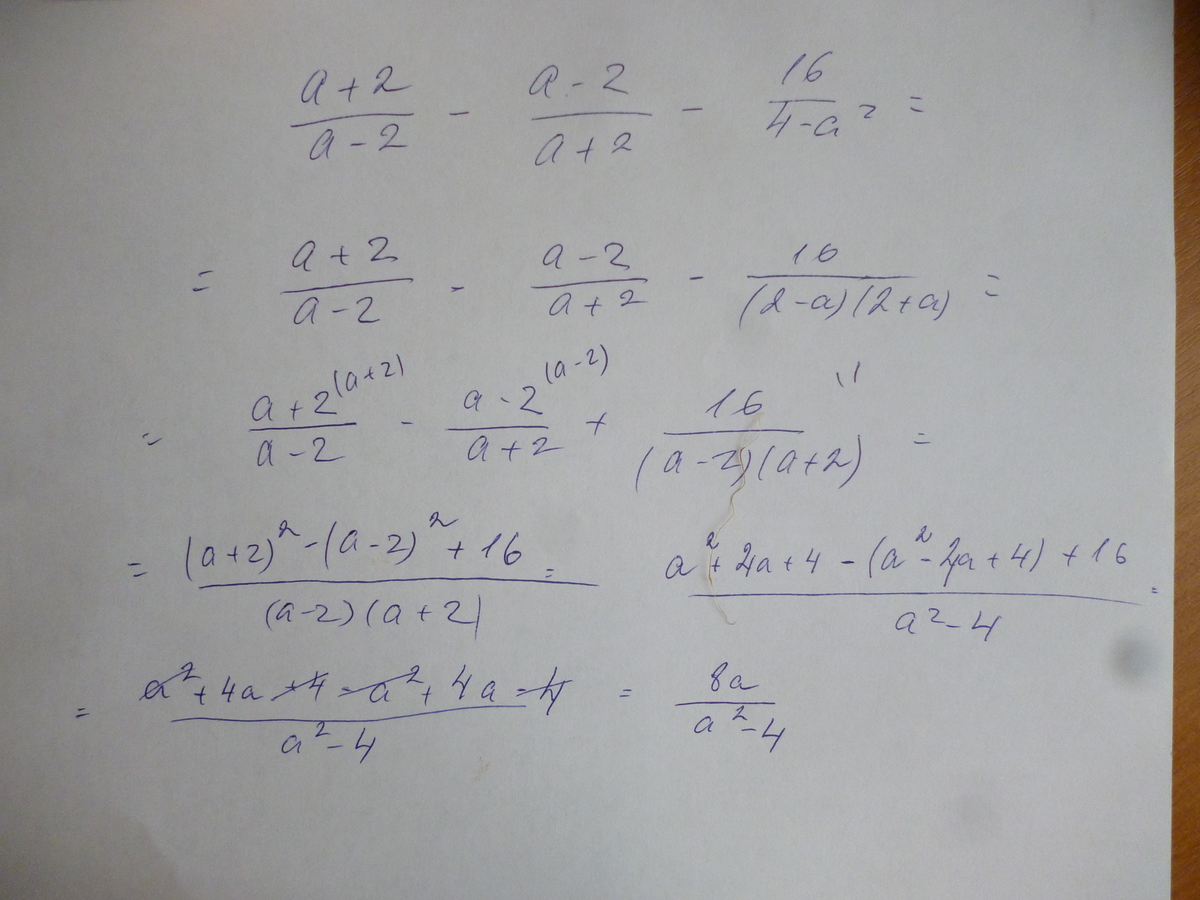 (a+2)/(a-2) - (a-2)/(a+2) - 16/(4-a²) =
= (a+2)/(a-2) - (a-2)/(a+2) - 16/((2-a)(2+a)) =
= (a+2^(a+2))/(a-2) - (a-2^(a-2))/(a+2) + 16/((a-2)(a+2)) =
= ((a+2)²-(a-2)²+16)/((a-2)(a+2)) = (a²+4a+4-(a²-4a+4)+16)/(a²-4) =
= (a²+4a+4-a²+4a-4)/(a²-4) = 8a/(a²-4)